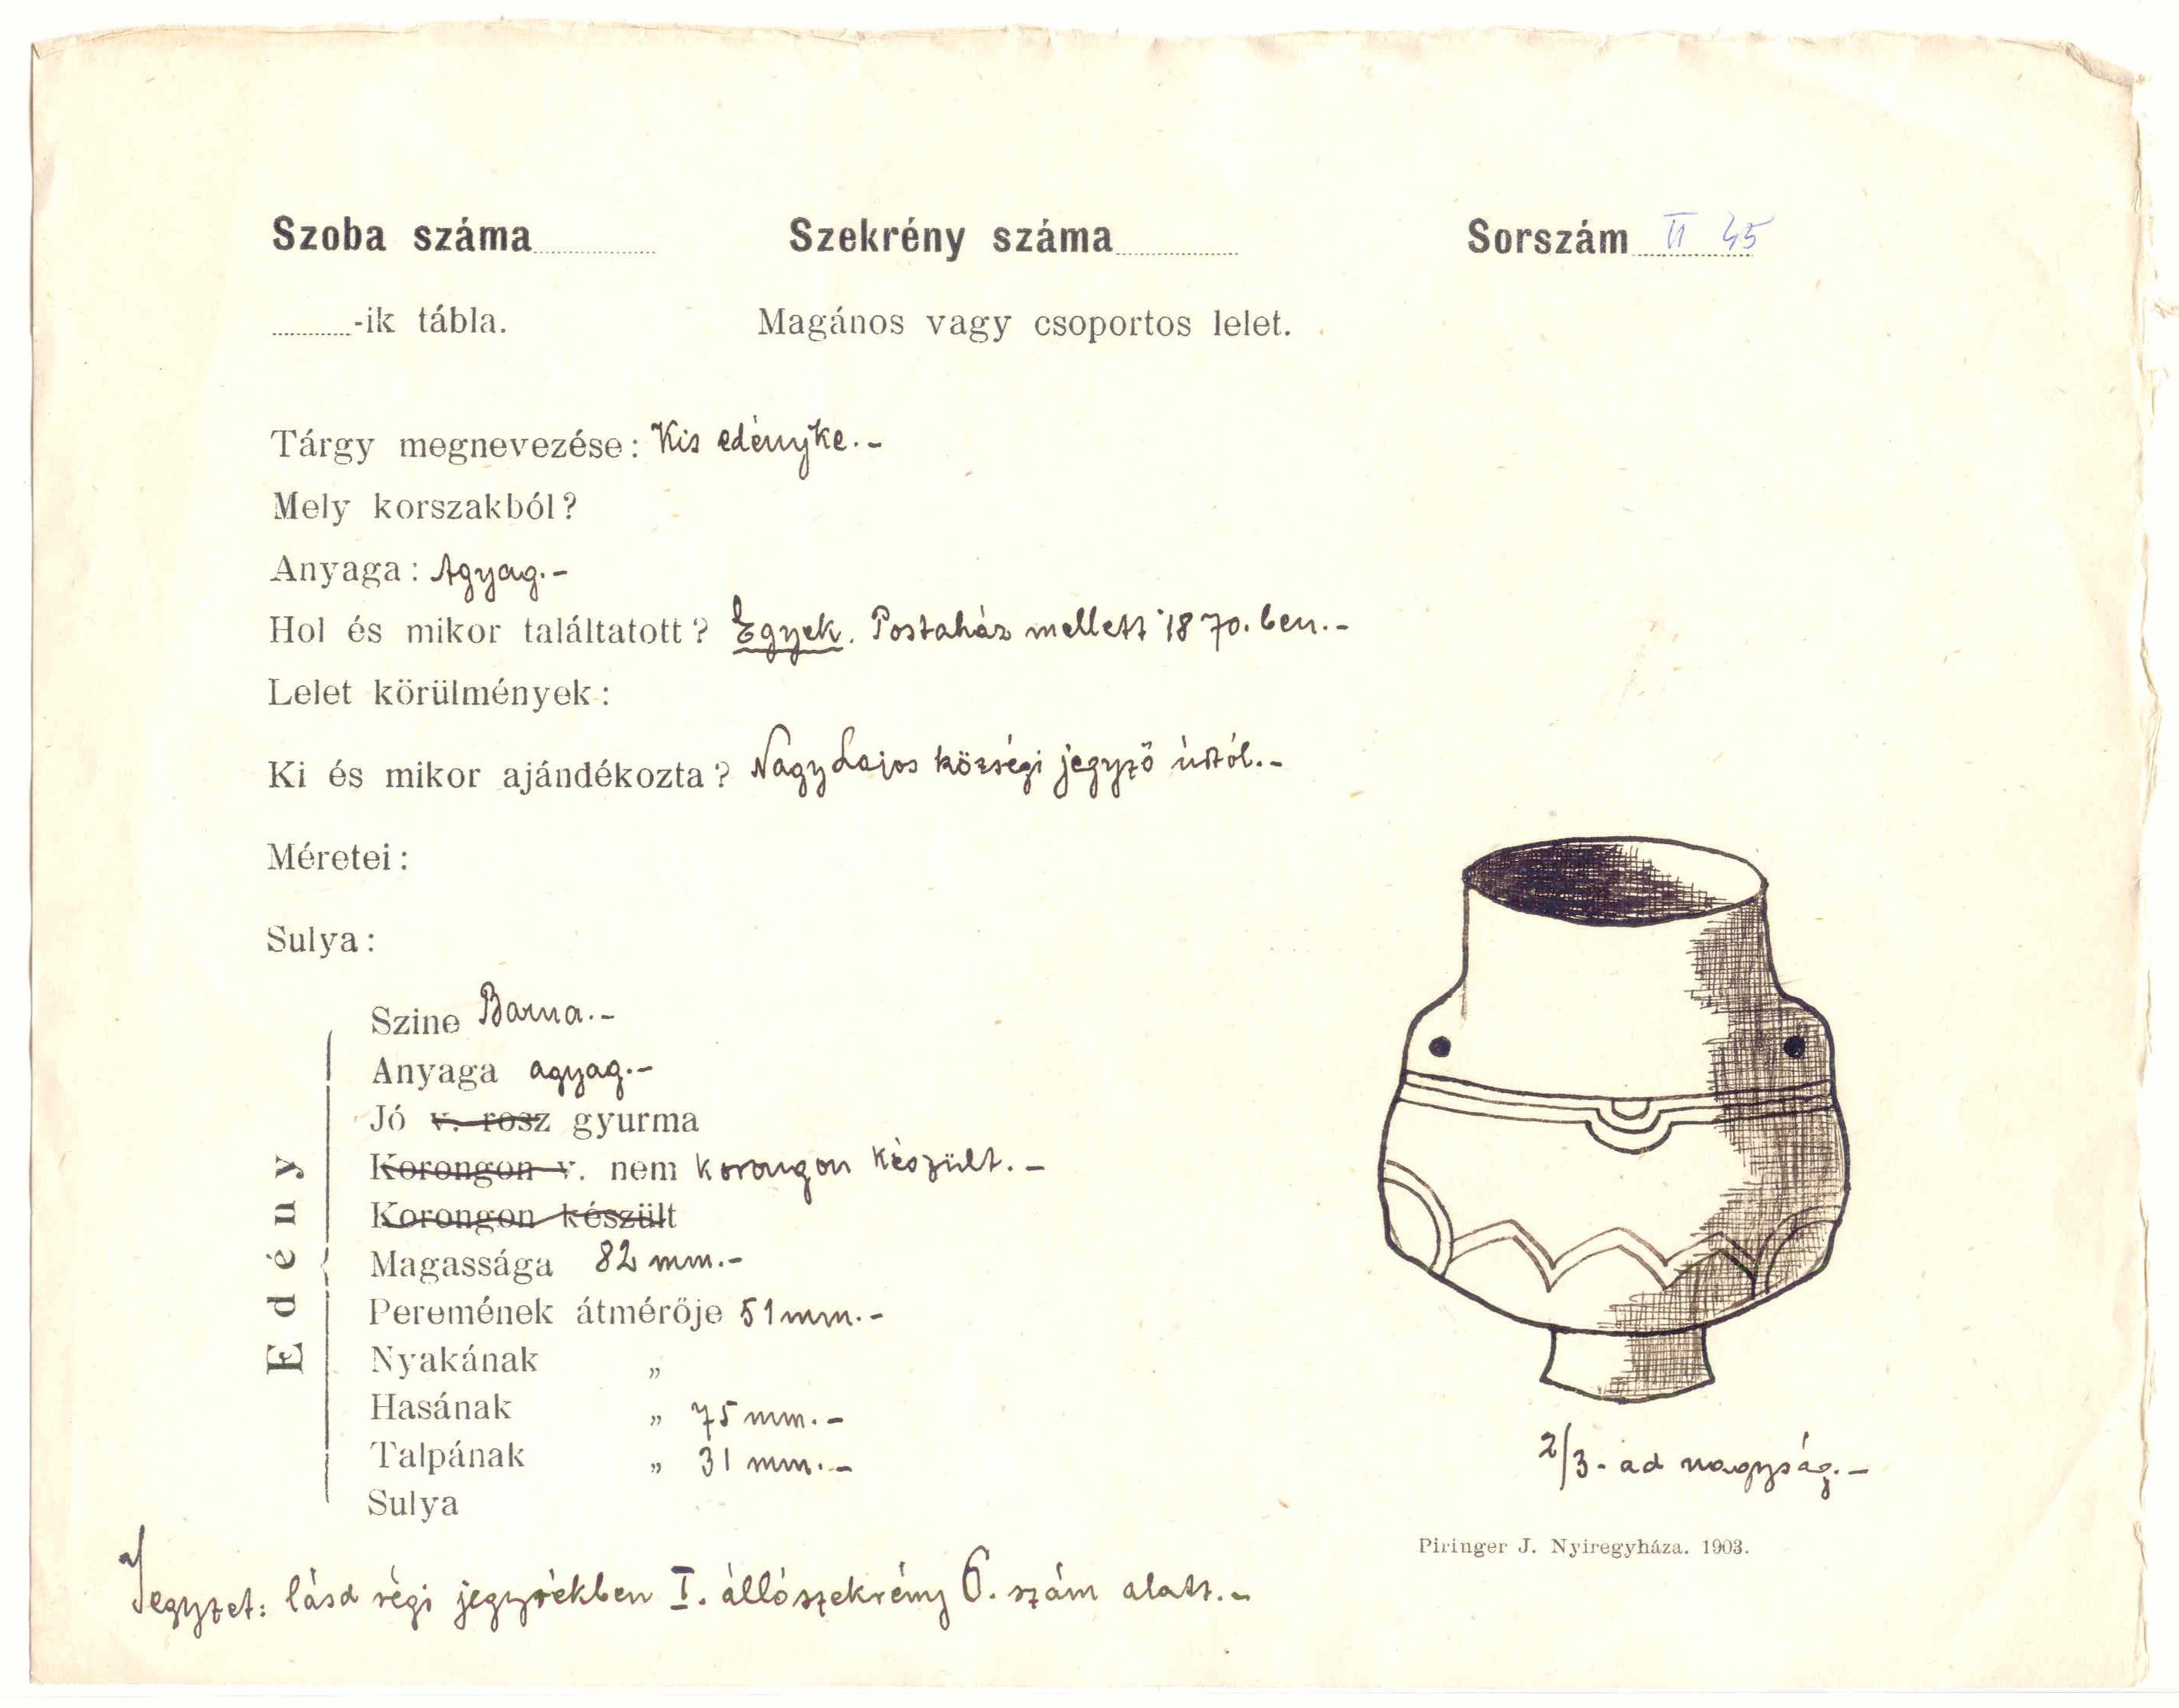 Szoba száma Szekrény száma Sorszám II 45
-ik tábla. Magános vagy csoportos lelet.
Tárgy megnevezése: Kis edényke.-
Mely korszakból?
Anyaga: Agyag.-
Hol és mikor találtatott? Egyek. Postaház mellett 1870. ben.-
Lelet körülmények:
Ki és mikor ajándékozta? Nagy Lajos községi jegyző úrtól.-
Méretei:
Sulya:
Edény
Szine Barna.-
Anyaga agyag.-
Jó v. rosz gyurma
Korongon v. nem korongon készült.-
Korongon készült
Magassága 82 mm.-
Peremének átmérője 51 mm.-
Nyakának „
Hasának „ 75 mm.-
Talpának „ 31 mm.-
Sulya
2/3-ad nagyság.-
Piringer J. Nyiregyháza. 1903.
Jegyzet: lásd régi jegyzékben I. állószekrény 6. szám alatt.-